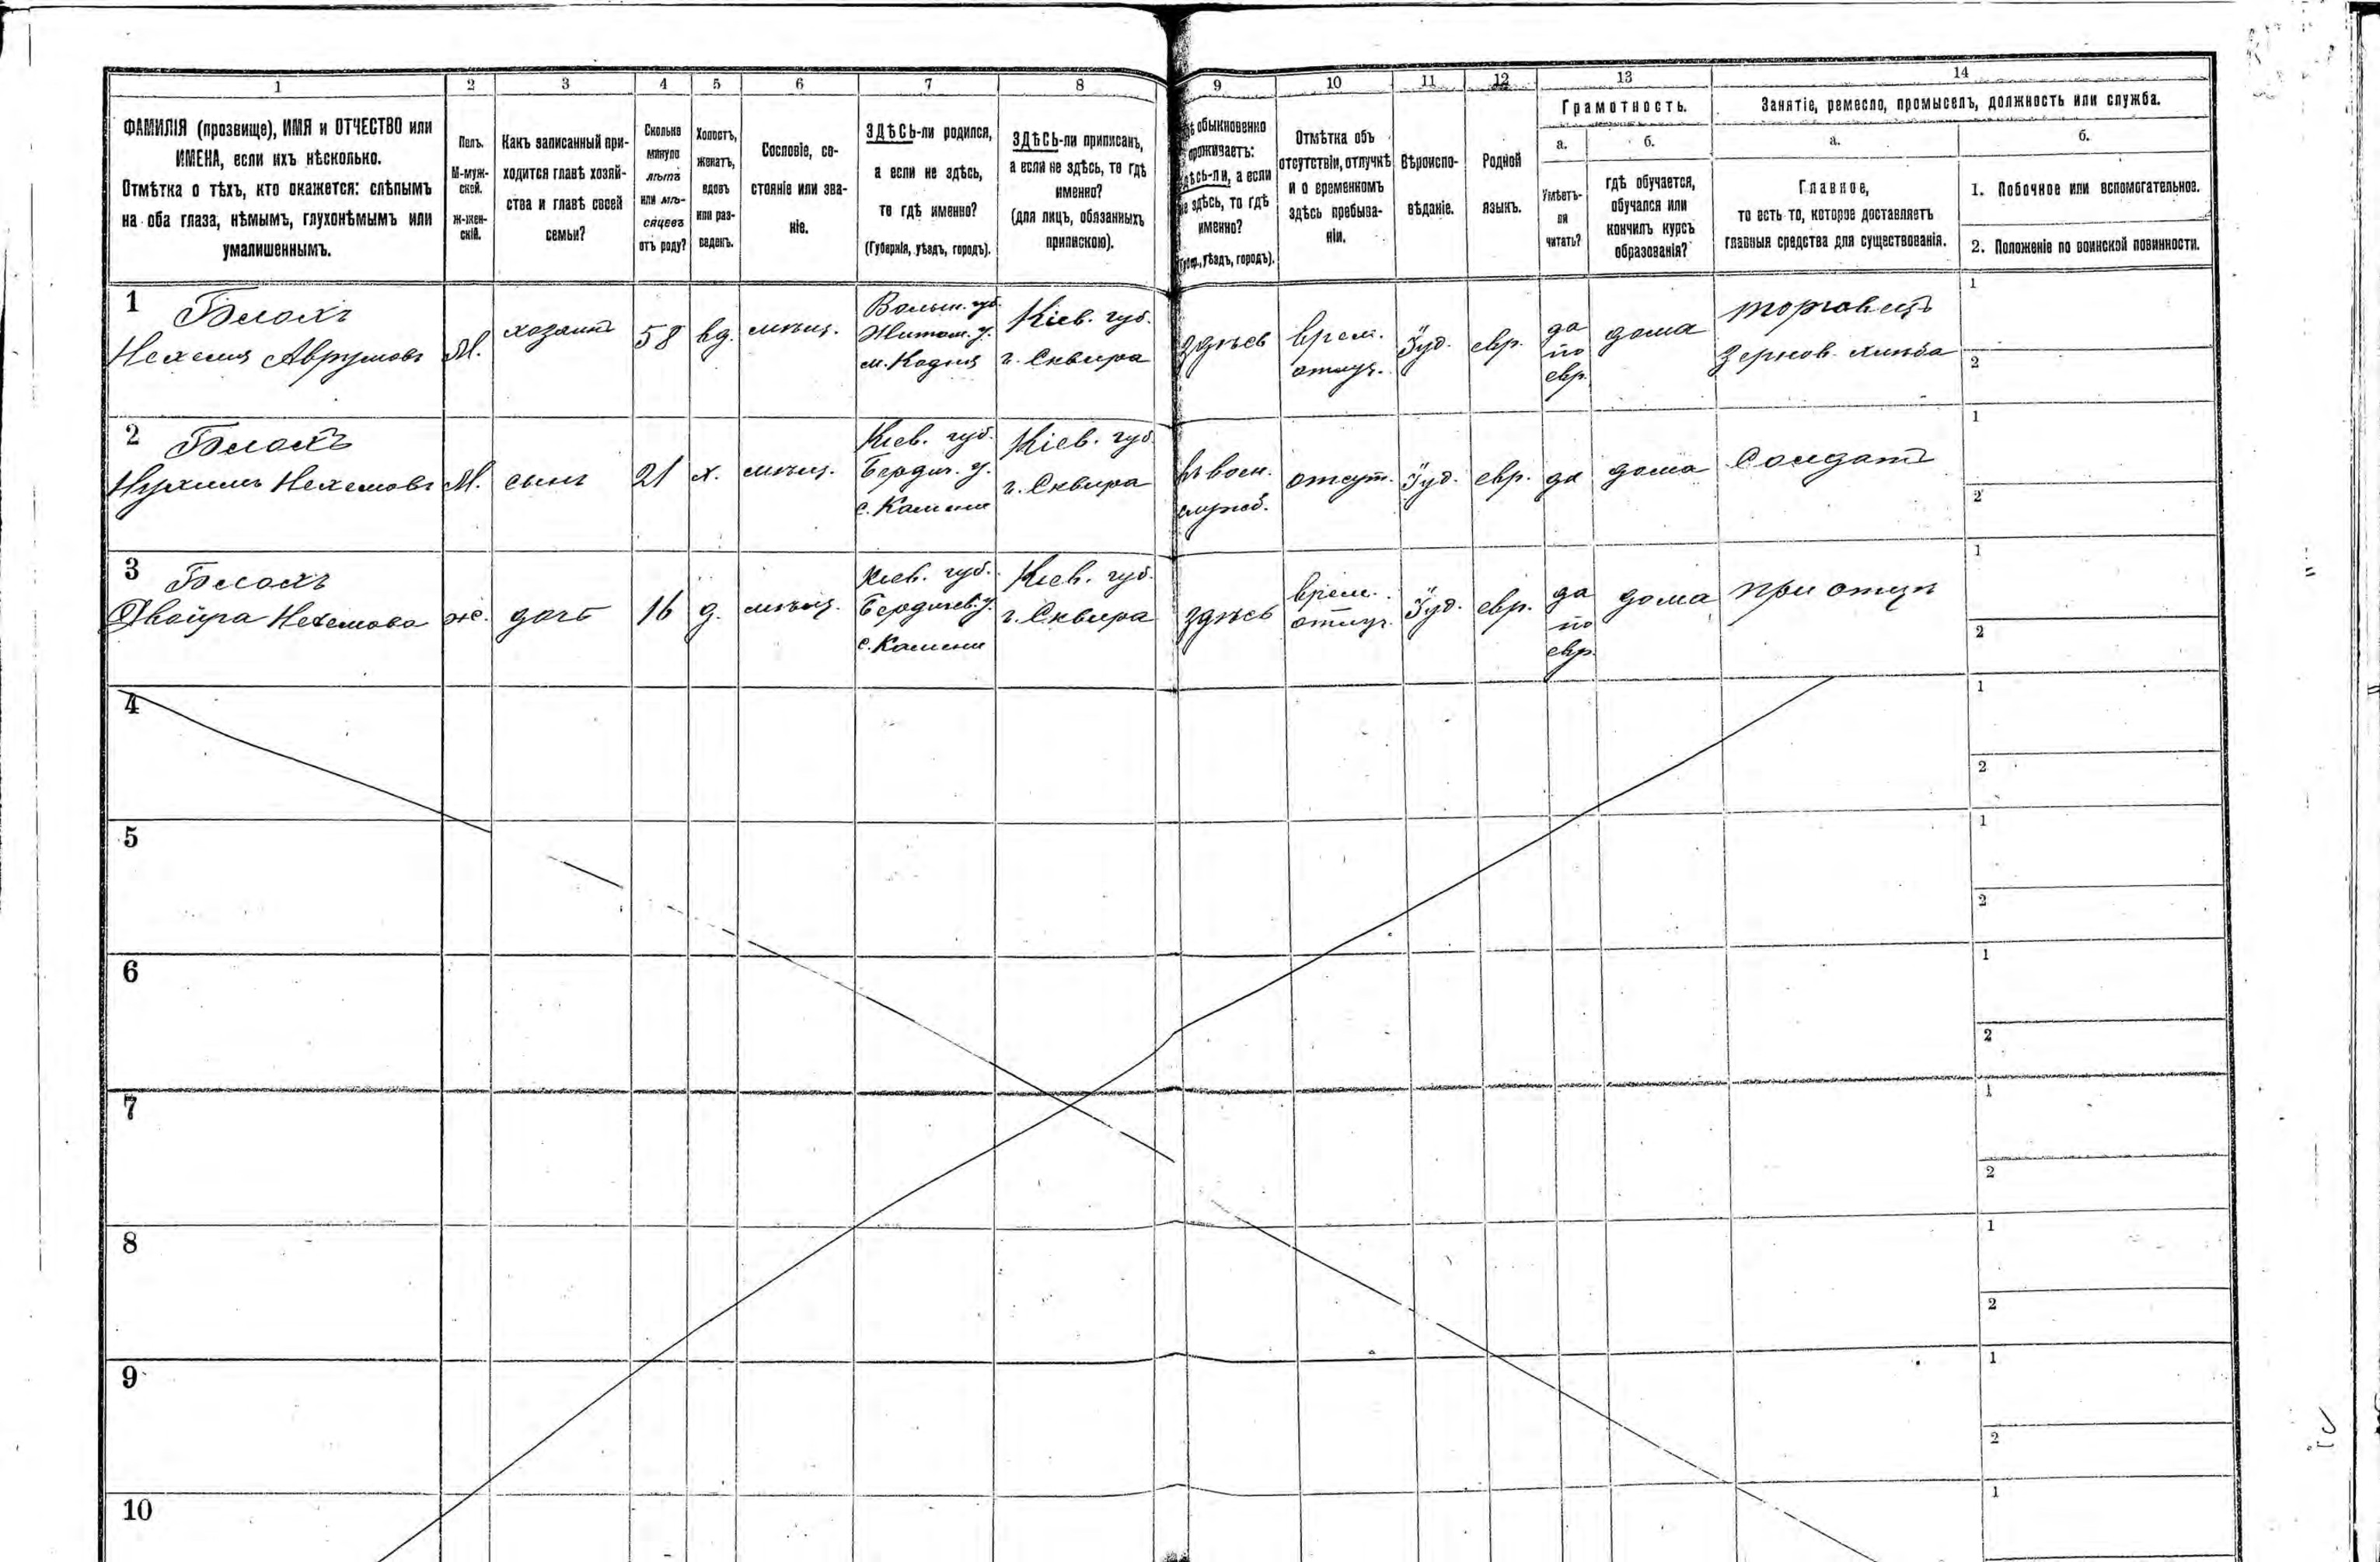 1 2 3 4 5 6 7 8 9 10 11 12 13 14
ФАМИЛІЯ (прозвище), ИМЯ и ОТЧЕСТВО или
ИМЕНА, если ихъ нѣсколько.
Отмѣтка о тѣхъ, кто окажется: слѣпымъ
на оба глаза, нѣмымъ, глухонѣмымъ или
умалишеннымъ.
Полъ.
М-муж-
ской.
Ж-жен-
скій.
Какъ записанный при-
ходится главѣ хозяй-
ства и главѣ своей
семьи?
Сколько
минуло
лѣтъ
или мѣ-
сяцевъ
отъ роду?
Холостъ,
женатъ,
вдовъ
или раз-
веденъ.
Сословіе, со-
стояніе или зва-
ніе.
ЗДѢСЬ-ли родился,
а если не здѣсь,
то гдѣ именно?
(Губернія, уѣздъ, городъ).
ЗДѢСЬ-ли приписанъ,
а если не здѣсь, то гдѣ
именно?
(для лицъ, обязанныхъ
припискою).
обыкновенно
проживаетъ:
здѣсь-ли, а если
не здѣсь, то гдѣ
именно?
уѣздъ, городъ).
Отмѣтка объ
отсутствіи, отлучкѣ
и о временномъ
здѣсь пребыва-
ніи.
Вѣроиспо-
вѣданіе.
Родной
языкъ.
Грамотность.
а.
Умѣетъ-
ли
читать?
б.
гдѣ обучается,
обучался или
кончилъ курсъ
образованія?
Занятіе, ремесло, промыселъ, должность или служба.
а.
Главное,
то есть то, которое доставляетъ
главныя средства для существованія.
б.
1. Побочное или вспомогательное.
2. Положеніе по воинской повинности.
1
Блохъ
Нехемія Аврумовъ
М.
хозяинъ
58
вд.
мѣщ.
Волын. губ.
Житом. у.
м. Кодня
Кіев. губ.
г. Сквира
здѣсь
врем.
отлуч.
Іуд.
евр.
да
по
евр.
дома
торговецъ
зернов. хлѣба
1
2
2
Блохъ
Нухимъ Нехемовъ
М.
сынъ
21
х.
мѣщ.
Кіев. губ.
Бердич. у.
Кіев. губ.
г. Сквира
въ воен.
служб.
отсут.
Іуд.
евр.
да
дома
Солдатъ
1
2
3
Блохъ
Двойра Нехемова
ж.
дочь
16
д.
мѣщ.
Кіев. губ.
Бердичев. у.
Кіев. губ.
г. Сквира
здѣсь
врем.
отлуч.
Іуд.
евр.
да
по
евр.
дома
при отцѣ
1
2
4
1
2
5
1
2
6
1
2
7
1
2
8
1
2
9
1
2
10
1